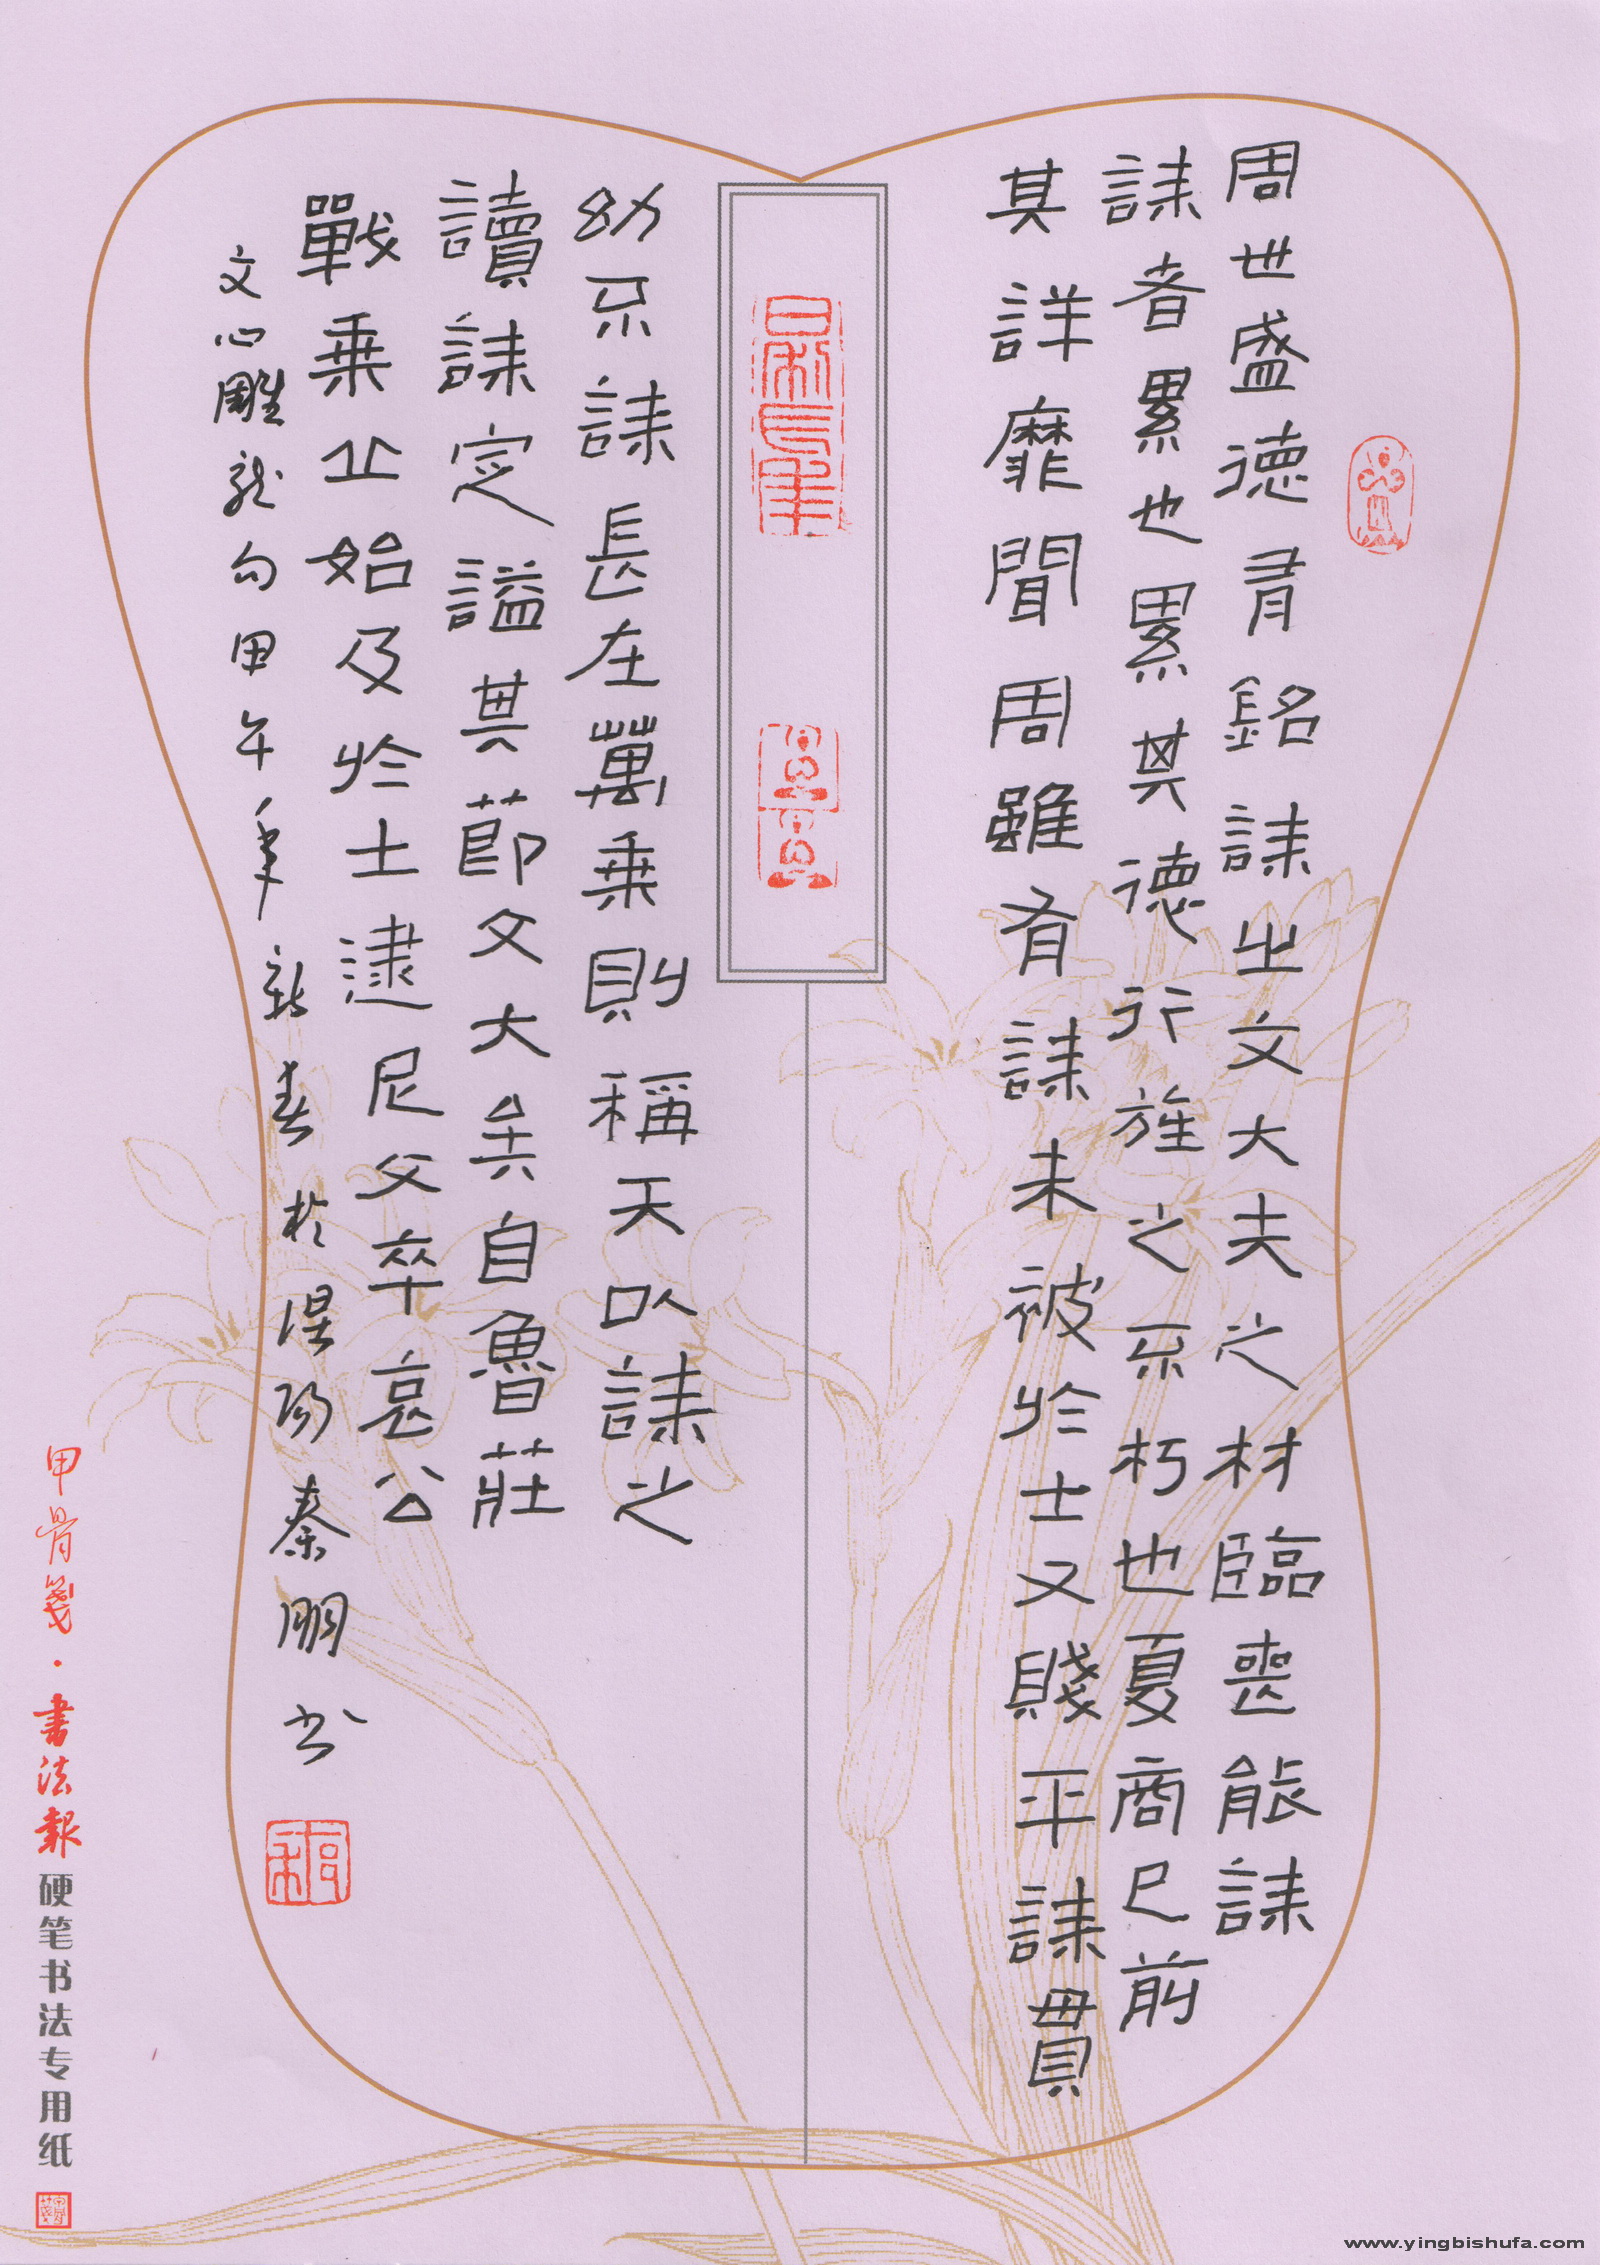 周世盛德有銘誄之文大夫之材臨喪能誄
誄者累也累其德行旌之不朽也夏商已前
其詳靡聞周雖有誄未被於士又賤不誄貴
幼不誄長在萬乘則稱天以誄之
讀誄定謚其節文大矣自魯莊
戰乘丘始及於士逮尼父卒哀公
文心雕龍句甲午年新春於涅陽秦朋书
甲骨箋·書法報硬笔书法专用纸
www.yingbishufa.com